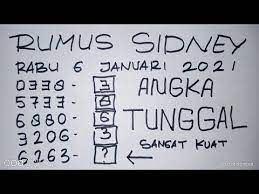 RUMUS SIDNEY
RABU 6 JANUARI 2021
0338- 3
5733- 8
6880- 6
3206- 3
6263- ?
ANGKA
TUNGGAL
SANGAT KUAT